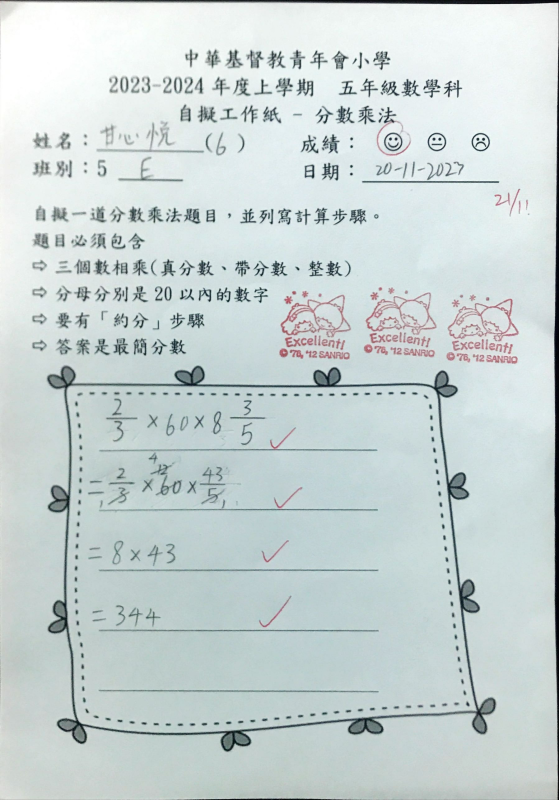 中華基督教青年會小學
2023-2024 年度上學期 五年級數學科
自擬工作紙 - 分數乘法
姓名：甘心悦(6) 成績：
班別：5 E 日期：20-11-2023
21/11
自擬一道分數乘法題目，並列寫計算步驟。
題目必須包含
⇨ 三個數相乘(真分數、帶分數、整數)
⇨ 分母分別是 20 以內的數字
⇨ 要有「約分」步驟
⇨ 答案是最簡分數
Excellent! Excellent! Excellent!
©'76, '12 SANRIO ©'76, '12 SANRIO ©'76, '12 SANRIO
2/3 × 60 × 8 3/5
= 2/3 × 60 × 43/5
= 8 × 43
= 344